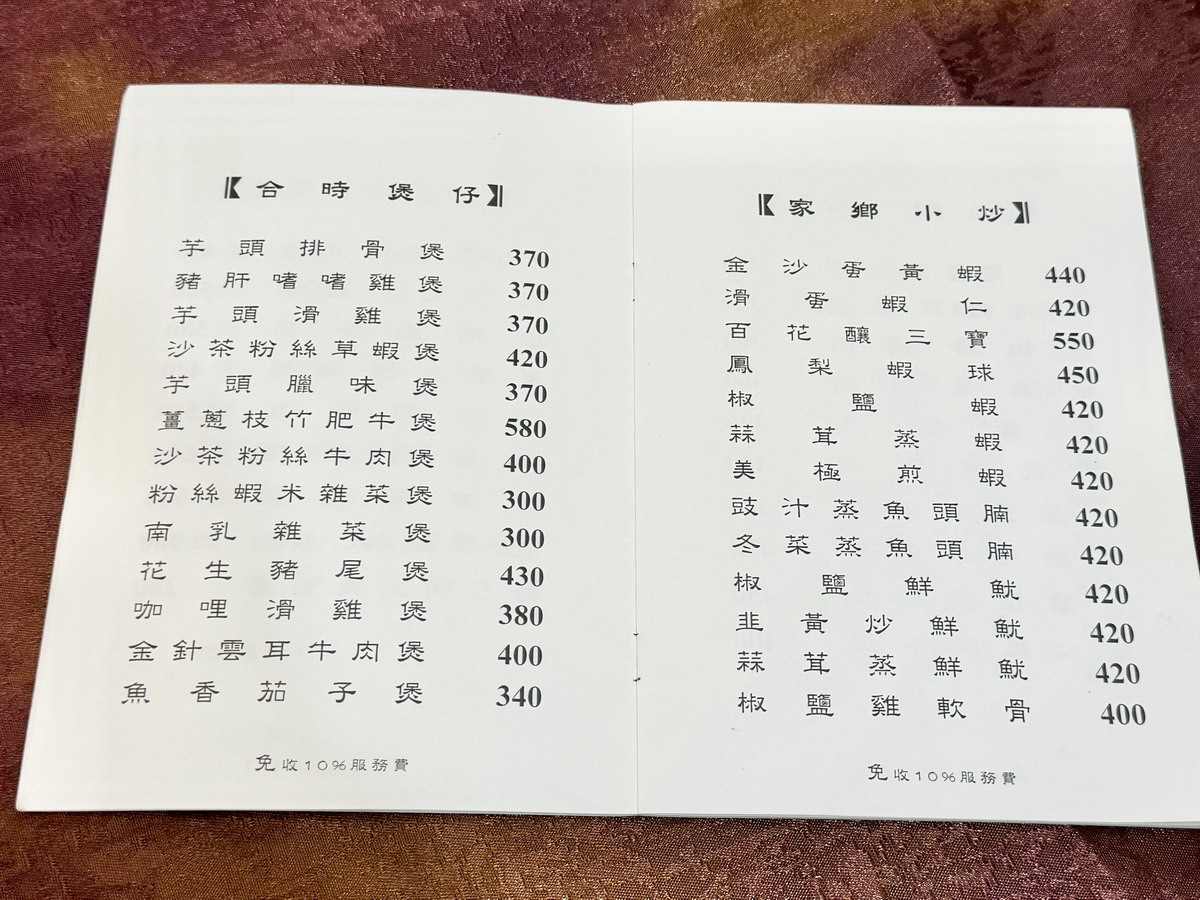 【合時煲仔】
芋頭排骨煲 370
豬肝嗜嗜雞煲 370
芋頭滑雞煲 370
沙茶粉絲草蝦煲 420
芋頭臘味煲 370
薑蔥枝竹肥牛煲 580
沙茶粉絲牛肉煲 400
粉絲蝦米雜菜煲 300
南乳雜菜煲 300
花生豬尾煲 430
咖哩滑雞煲 380
金針雲耳牛肉煲 400
魚香茄子煲 340
免收10%服務費
【家鄉小炒】
金沙蛋黃蝦 440
滑蛋蝦仁 420
百花釀三寶 550
鳳梨蝦球 450
椒鹽蝦 420
蒜茸蒸蝦 420
美極煎蝦 420
豉汁蒸魚頭腩 420
冬菜蒸魚頭腩 420
椒鹽鮮魷 420
韭黃炒鮮魷 420
蒜茸蒸鮮魷 420
椒鹽雞軟骨 400
免收10%服務費